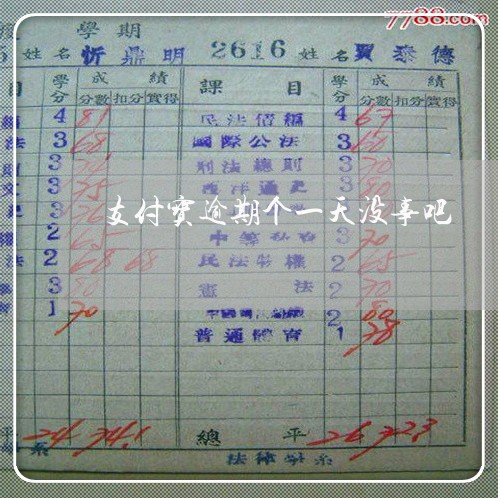 7788.com
學期
姓名 忻鼎明 2616 姓名 賈泰德
目 學分 成績 課目 學分 成績
分數 扣分 實得 分數 扣分 實得
4 81 民法債編 4 67
法 3 68 國際公法 3 60
3 刑法總則 3 70
3 75 西洋通史 3 80
支付寶逾期个一天没事吧
2 65 3 70
法 2 68 68 民法物權 2 65
3 80 憲法 2 70
1 70 2 80
普通體育 1 78
平 24 74.1 總平 26 72.3
系 法律學系